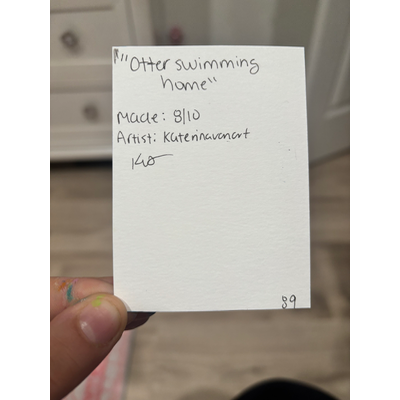 "Otter swimming
home"
Made: 8/10
Artist: Katerinavanart
89